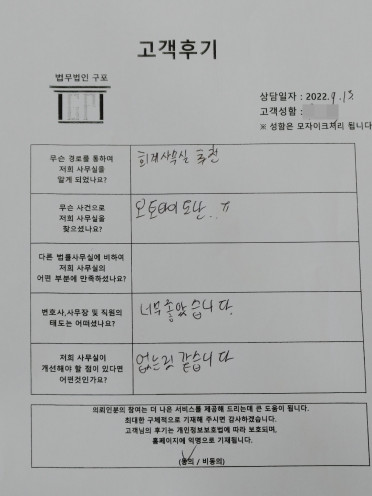 고객후기
법무법인 구포
상담일자 : 2022. 9. 13
고객성함 :
※ 성함은 모자이크처리 됩니다
무슨 경로를 통하여
저희 사무실을
알게 되었나요?
회계사무실 추천
무슨 사건으로
저희 사무실을
찾으셨나요?
오토바이 도난..ㅠ
다른 법률사무실에 비하여
저희 사무실의
어떤 부분에 만족하셨나요?
변호사,사무장 및 직원의
태도는 어떠셨나요?
너무 좋았습니다.
저희 사무실이
개선해야 할 점이 있다면
어떤것인가요?
없는것 같습니다
의뢰인분의 참여는 더 나은 서비스를 제공해 드리는데 큰 도움이 됩니다.
최대한 구체적으로 기재해 주시면 감사하겠습니다.
고객님의 후기는 개인정보보호법에 따라 보호되며,
홈페이지에 익명으로 기재됩니다.
(동의 / 비동의)